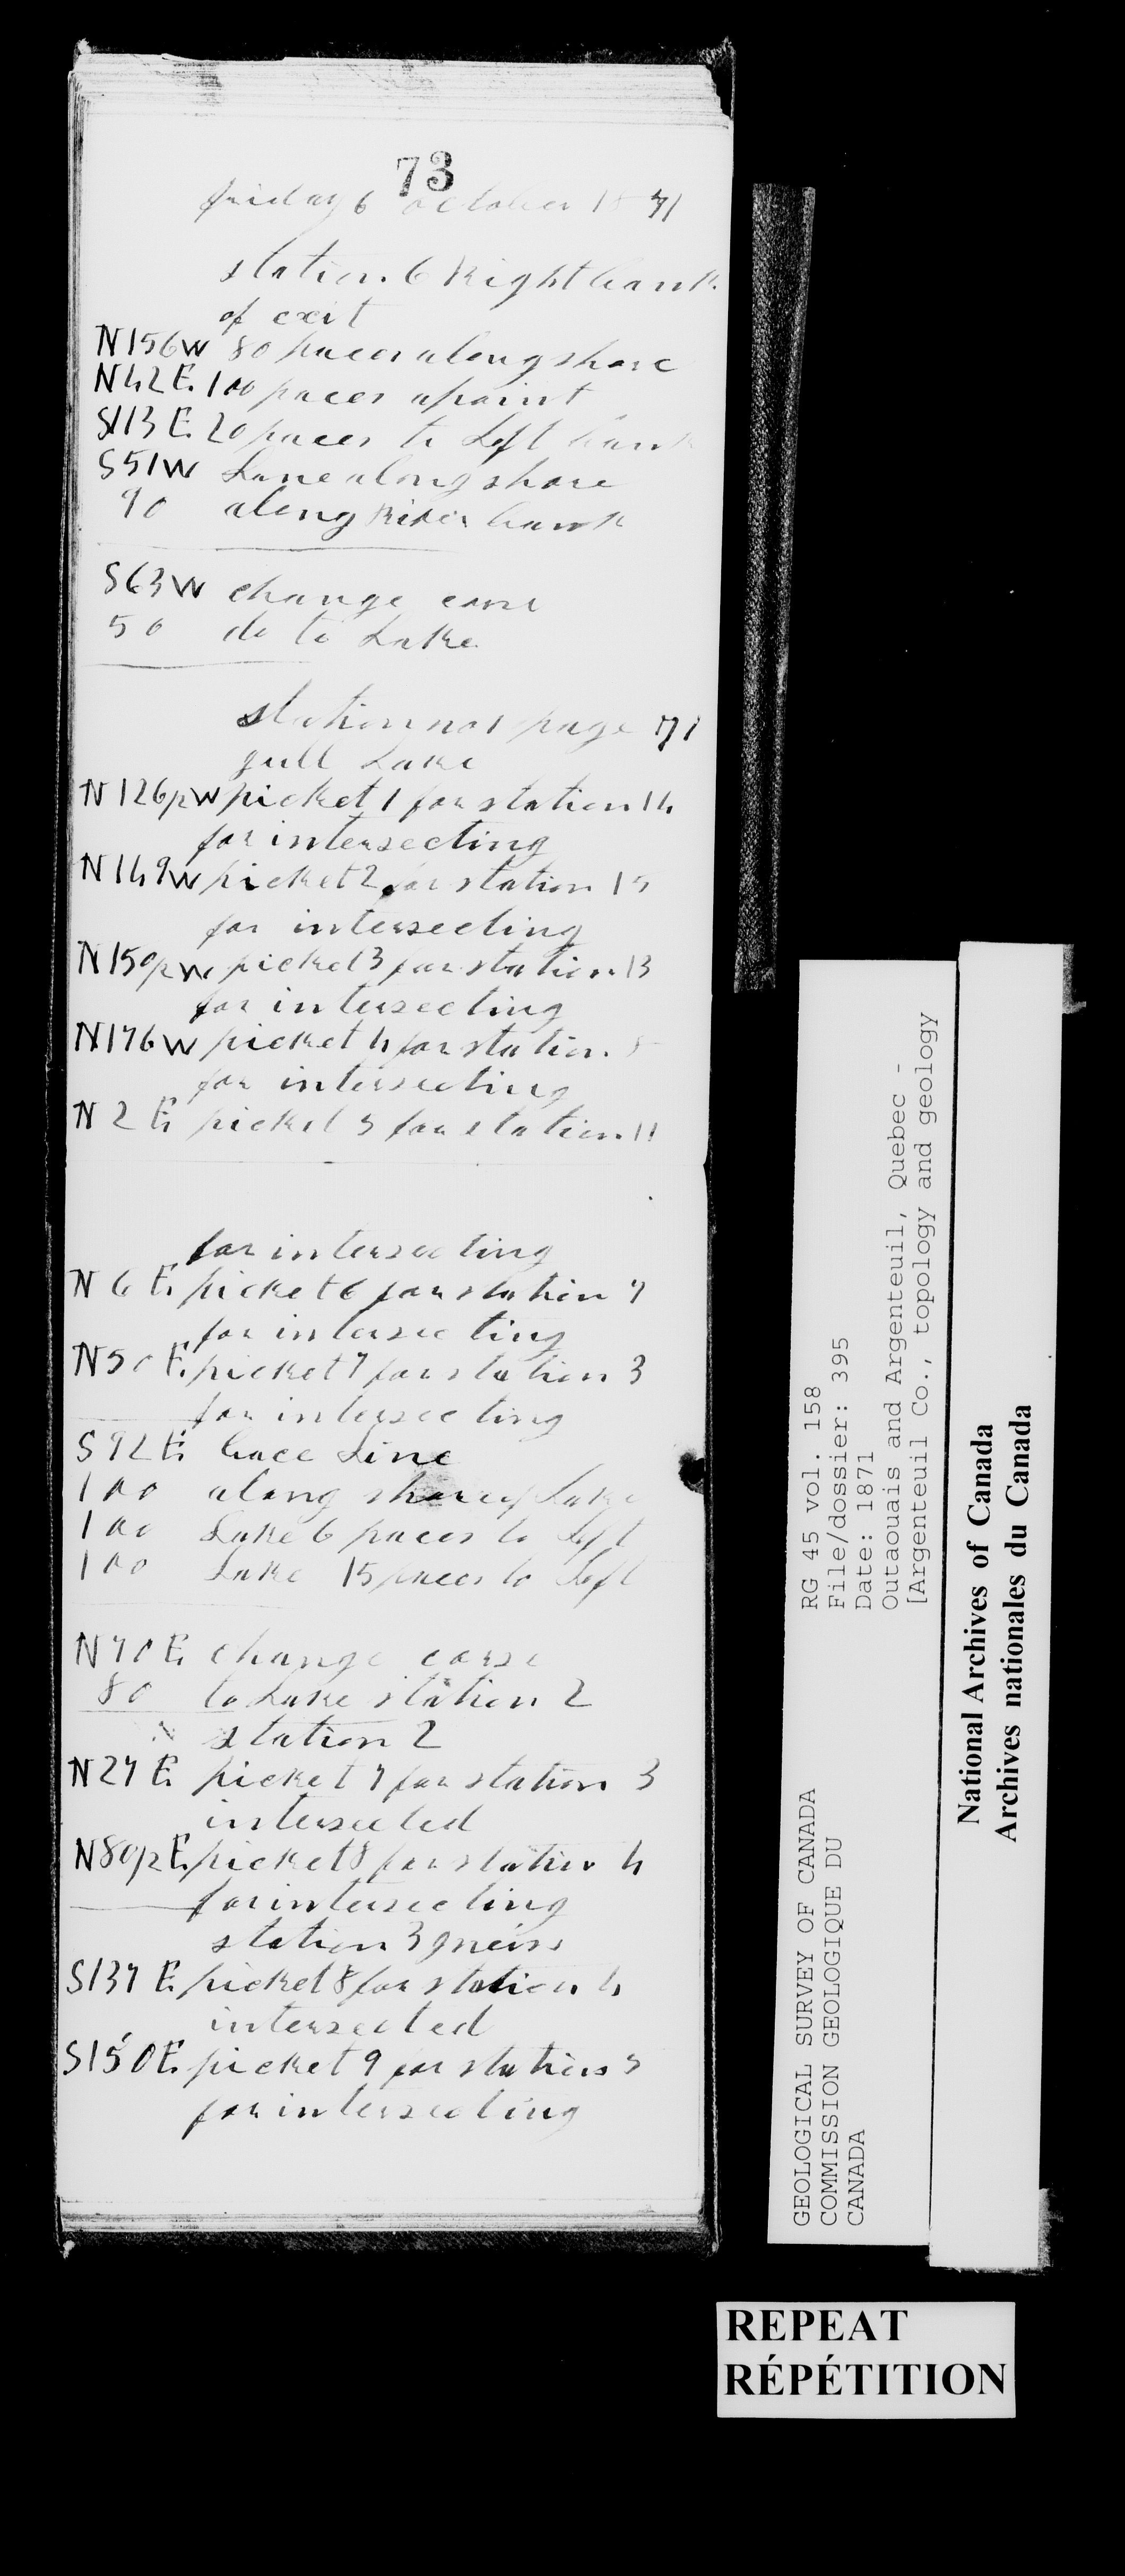 73
friday 6 october 1871
station 6 Right bank
of exit
N156W 80 paces along shore
N42E. 100 paces apoint
S113E. 20 paces to Left bank
S51W Lane along shore
90 along River bank
S63W change corse
50 do to Lake
station no 1 page 71
gull Lake
N126½W picket 1 for station 14
for intersecting
N149W picket 2 for station 15
for intersecting
N150½W picket 3 for station 13
for intersecting
N176W picket 4 for station
for intersecting
N2E. picket 5 for station 11
for intersecting
N6E. picket 6 for station 7
for intersecting
N50E. picket 7 for station 3
for intersecting
S92E. bace Line
100 along shore of Lake
100 Lake 6 paces to Left
100 Lake 15 paces to Left
N70E. change corse
80 to Lake station 2
station 2
N27E. picket 7 for station 3
intersected
N80½E. picket 8 for station 4
for intersecting
station 3 gneiss
S137E. picket 8 for station 4
intersected
S150E. picket 9 for station 5
for intersecting
GEOLOGICAL SURVEY OF CANADA
COMMISSION GEOLOGIQUE DU
CANADA
RG 45 vol. 158
File/dossier: 395
Date: 1871
Outaouais and Argenteuil, Quebec -
[Argenteuil Co., topology and geology
National Archives of Canada
Archives nationales du Canada
REPEAT
RÉPÉTITION